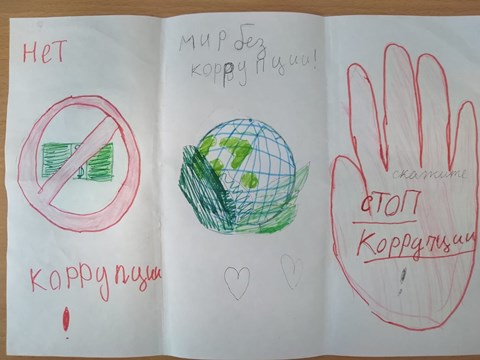 Нет
коррупции
!
мир без
коррупции!
скажите
СТОП
Коррупции
!